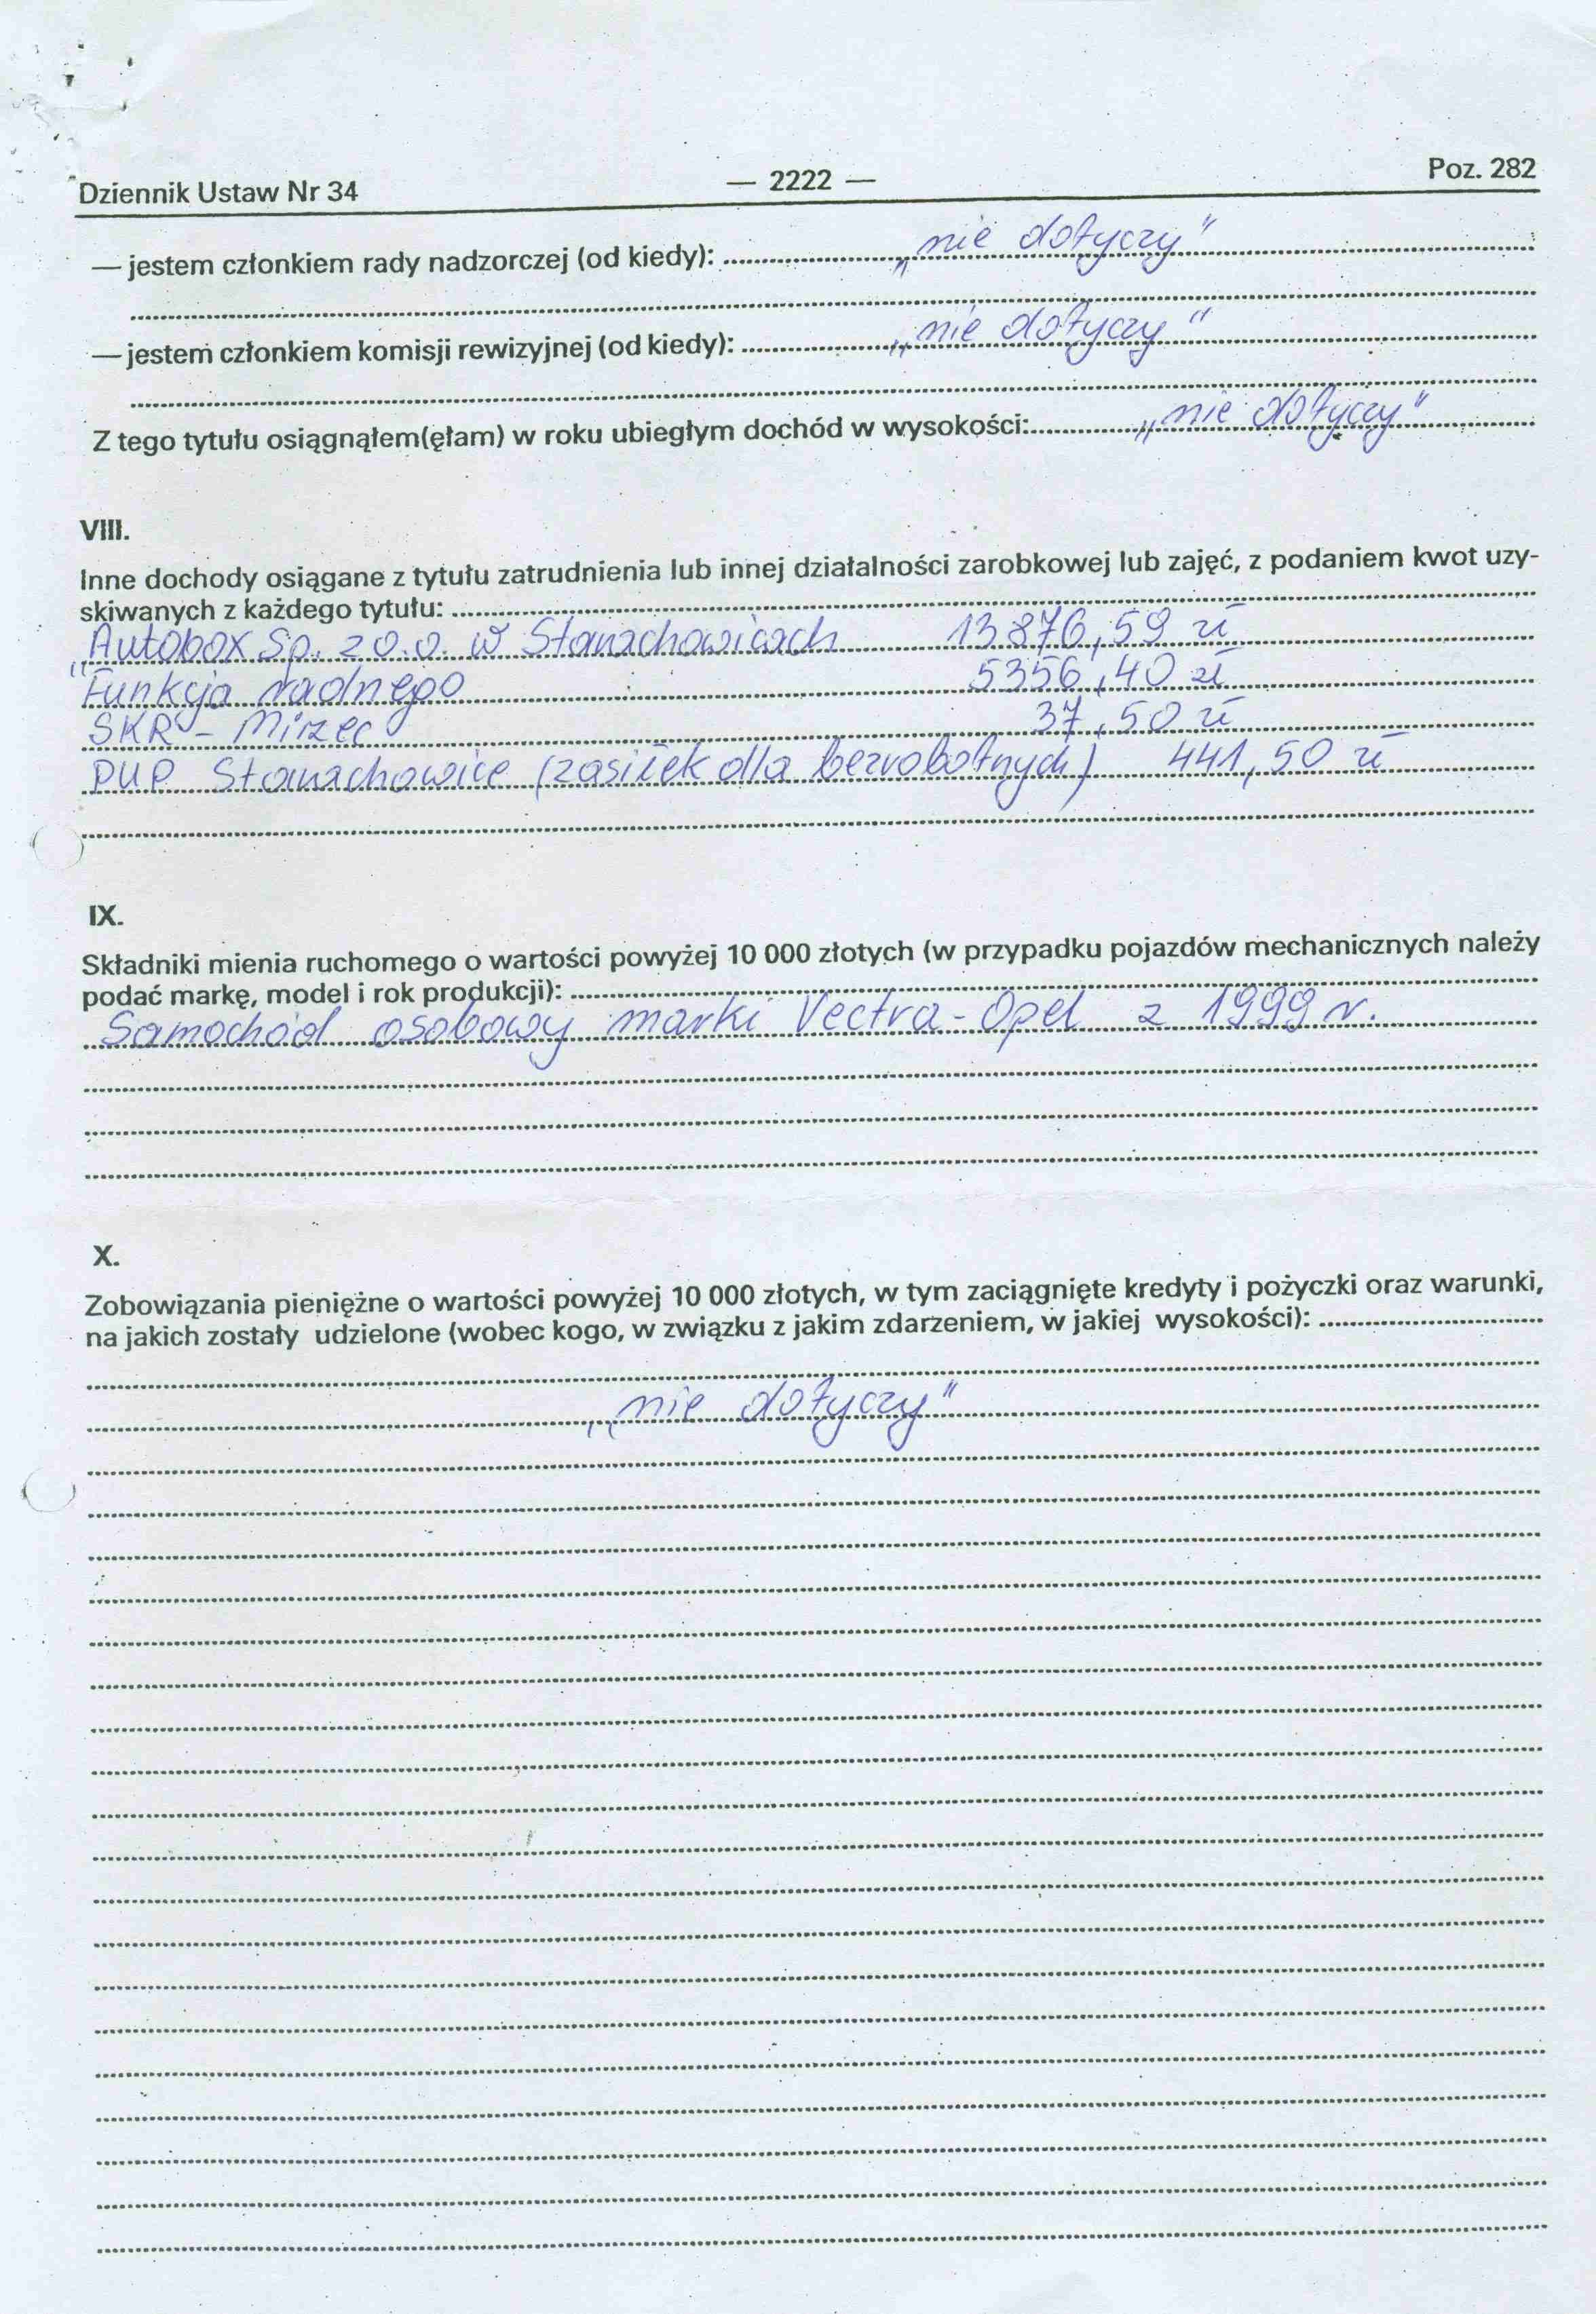 Dziennik Ustaw Nr 34 — 2222 — Poz. 282
— jestem członkiem rady nadzorczej (od kiedy): „nie dotyczy"
— jestem członkiem komisji rewizyjnej (od kiedy): „nie dotyczy"
Z tego tytułu osiągnąłem(ęłam) w roku ubiegłym dochód w wysokości: „nie dotyczy"
VIII.
Inne dochody osiągane z tytułu zatrudnienia lub innej działalności zarobkowej lub zajęć, z podaniem kwot uzy-
skiwanych z każdego tytułu:
„Autobox Sp. z o.o. w Starachowicach 13876,59 zł
Funkcja radnego 5356,40 zł
SKR - Mirzec 37,50 zł
PUP Starachowice (zasiłek dla bezrobotnych) 441,50 zł
IX.
Składniki mienia ruchomego o wartości powyżej 10 000 złotych (w przypadku pojazdów mechanicznych należy
podać markę, model i rok produkcji):
Samochód osobowy marki Vectra - Opel z 1999 r.
X.
Zobowiązania pieniężne o wartości powyżej 10 000 złotych, w tym zaciągnięte kredyty i pożyczki oraz warunki,
na jakich zostały udzielone (wobec kogo, w związku z jakim zdarzeniem, w jakiej wysokości):
„nie dotyczy"